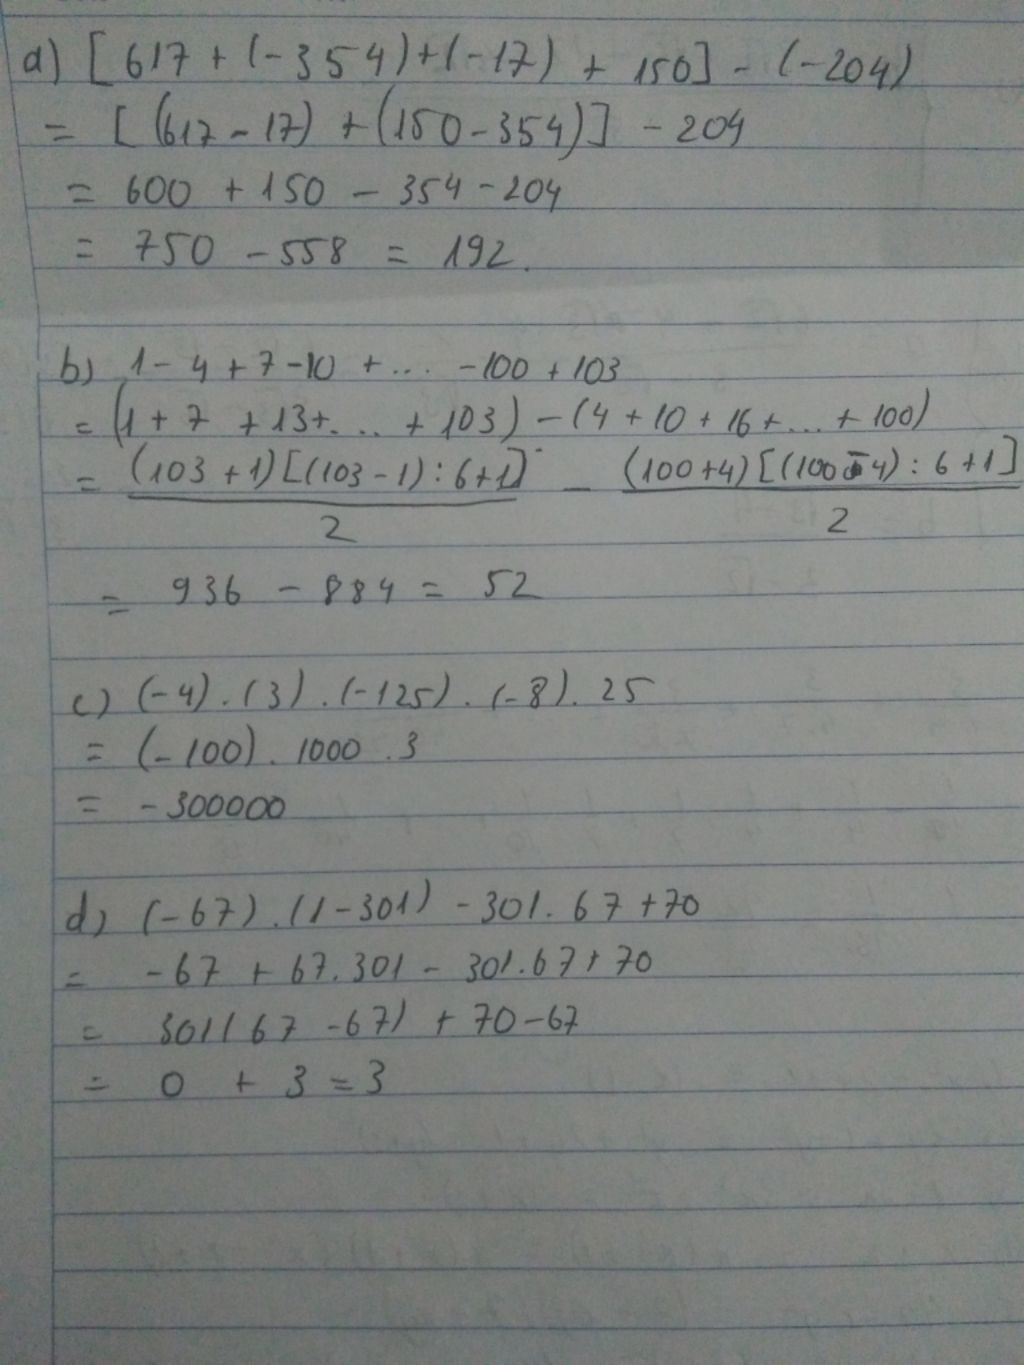 a) [617 + (-354)+(-17) + 150] - (-204)
= [(617 - 17) + (150 - 354)] - 204
= 600 + 150 - 354 - 204
= 750 - 558 = 192.
b) 1 - 4 + 7 - 10 + ... - 100 + 103
= (1 + 7 + 13 + ... + 103) - (4 + 10 + 16 + ... + 100)
= (103 + 1)[(103 - 1) : 6 + 1] / 2 - (100 + 4)[(100 - 4) : 6 + 1] / 2
= 936 - 884 = 52
c) (-4) . (3) . (-125) . (-8) . 25
= (-100) . 1000 . 3
= -300000
d) (-67) . (1 - 301) - 301 . 67 + 70
= -67 + 67 . 301 - 301 . 67 + 70
= 301(67 - 67) + 70 - 67
= 0 + 3 = 3